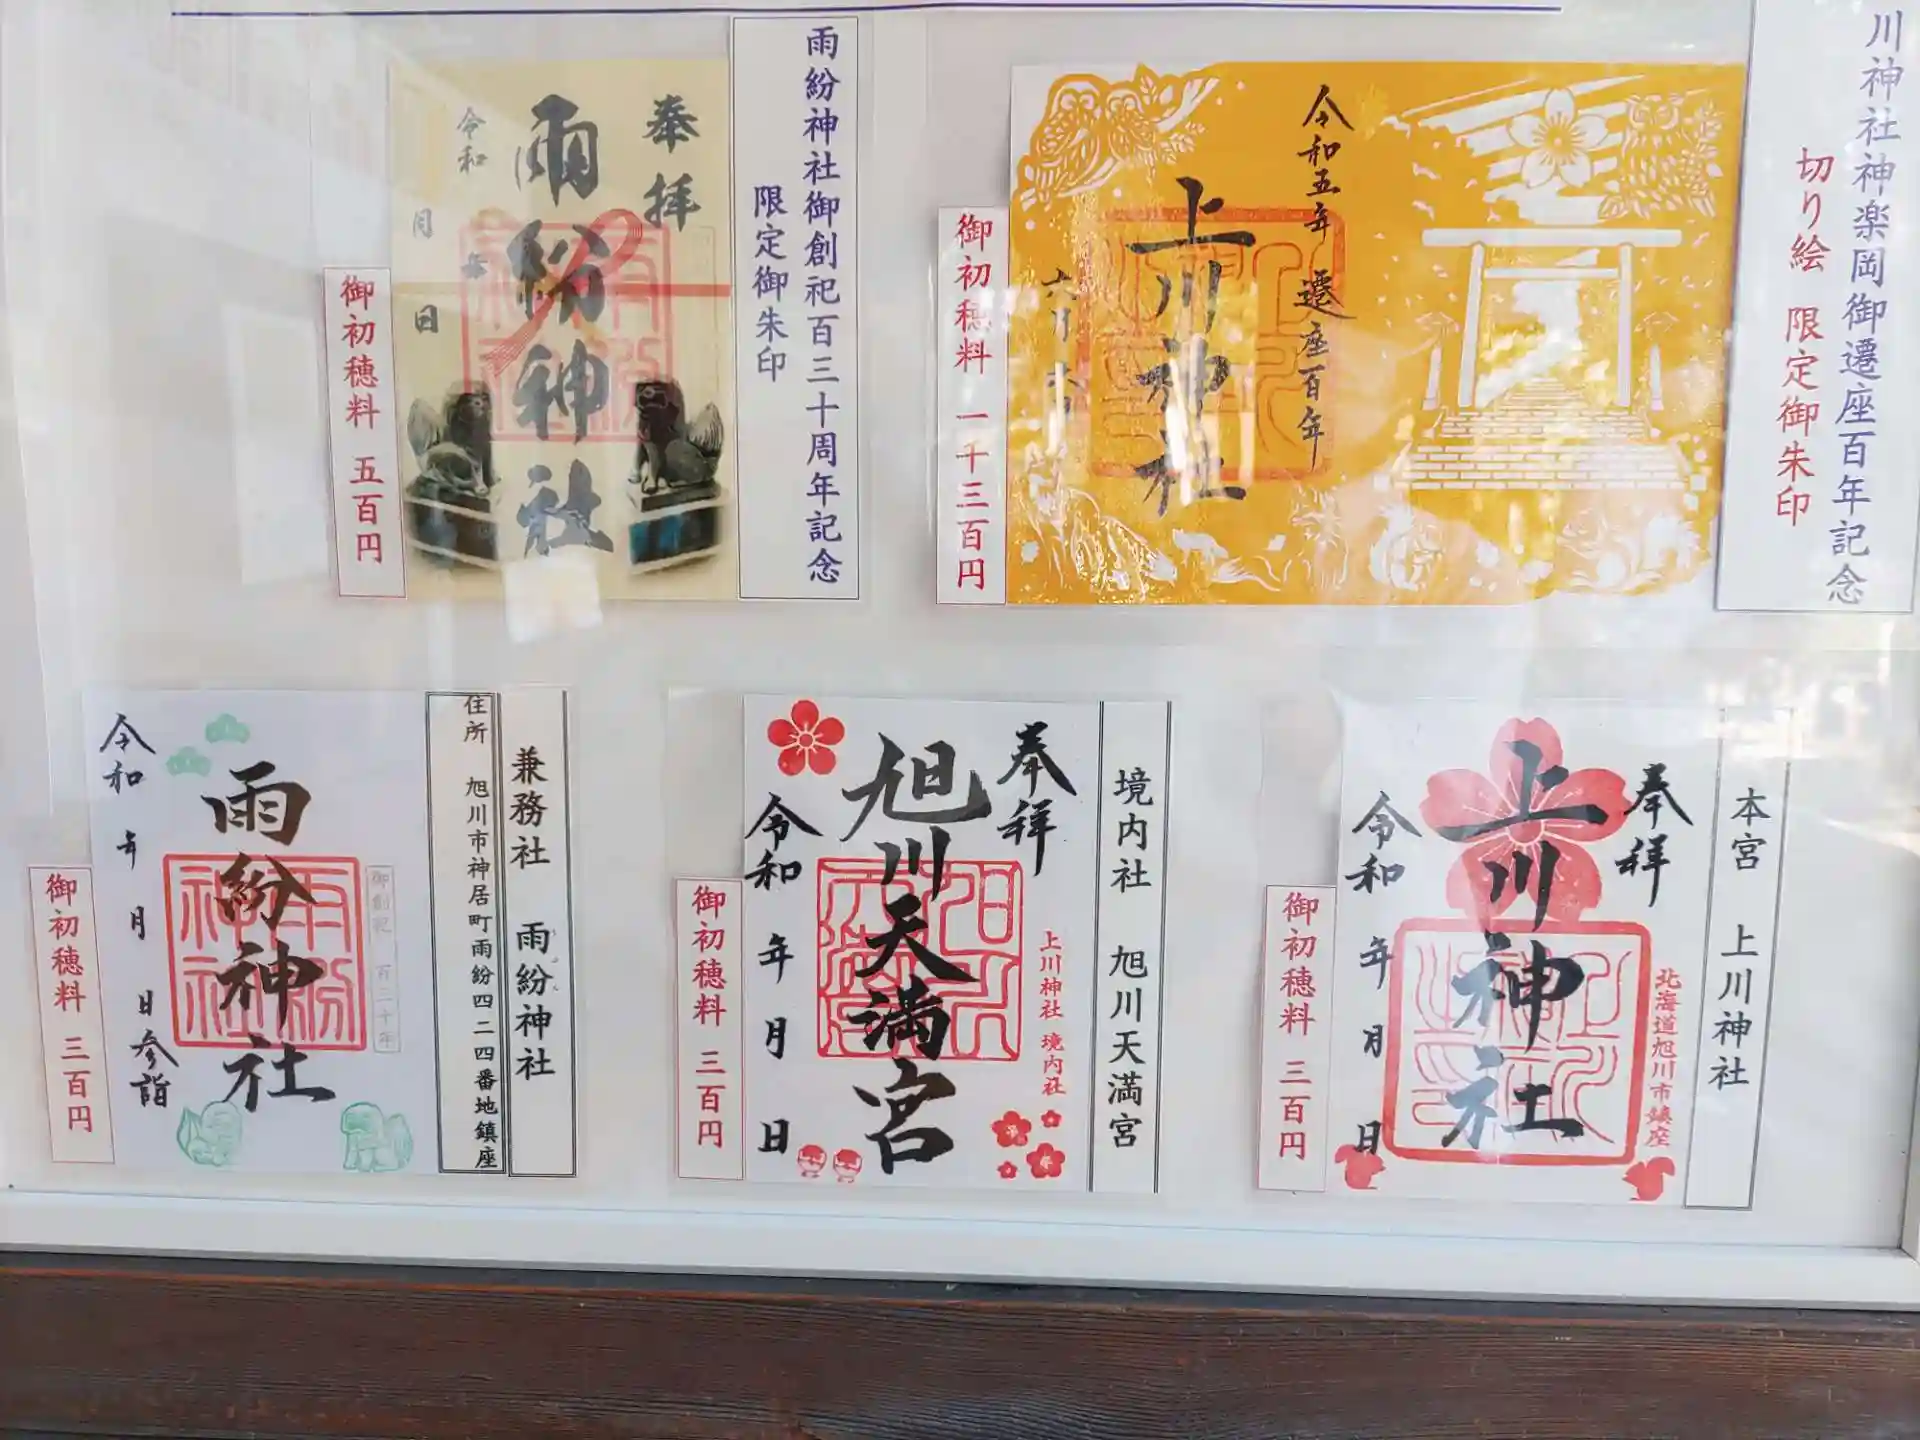 川神社神楽岡御遷座百年記念
切り絵 限定御朱印
令和五年 遷座百年
上川神社
六月
御初穂料 一千三百円
雨紛神社御創祀百三十周年記念
限定御朱印
奉拝
雨紛神社
令和 年
月 日
御初穂料 五百円
本宮 上川神社
奉拝
北海道旭川市鎮座
上川神社
令和 年 月 日
御初穂料 三百円
境内社 旭川天満宮
奉拝
上川神社 境内社
旭川天満宮
令和 年 月 日
御初穂料 三百円
兼務社 雨紛神社
住所 旭川市神居町雨紛四二四番地鎮座
御創祀 百三十年
雨紛神社
令和 年 月 日参詣
御初穂料 三百円